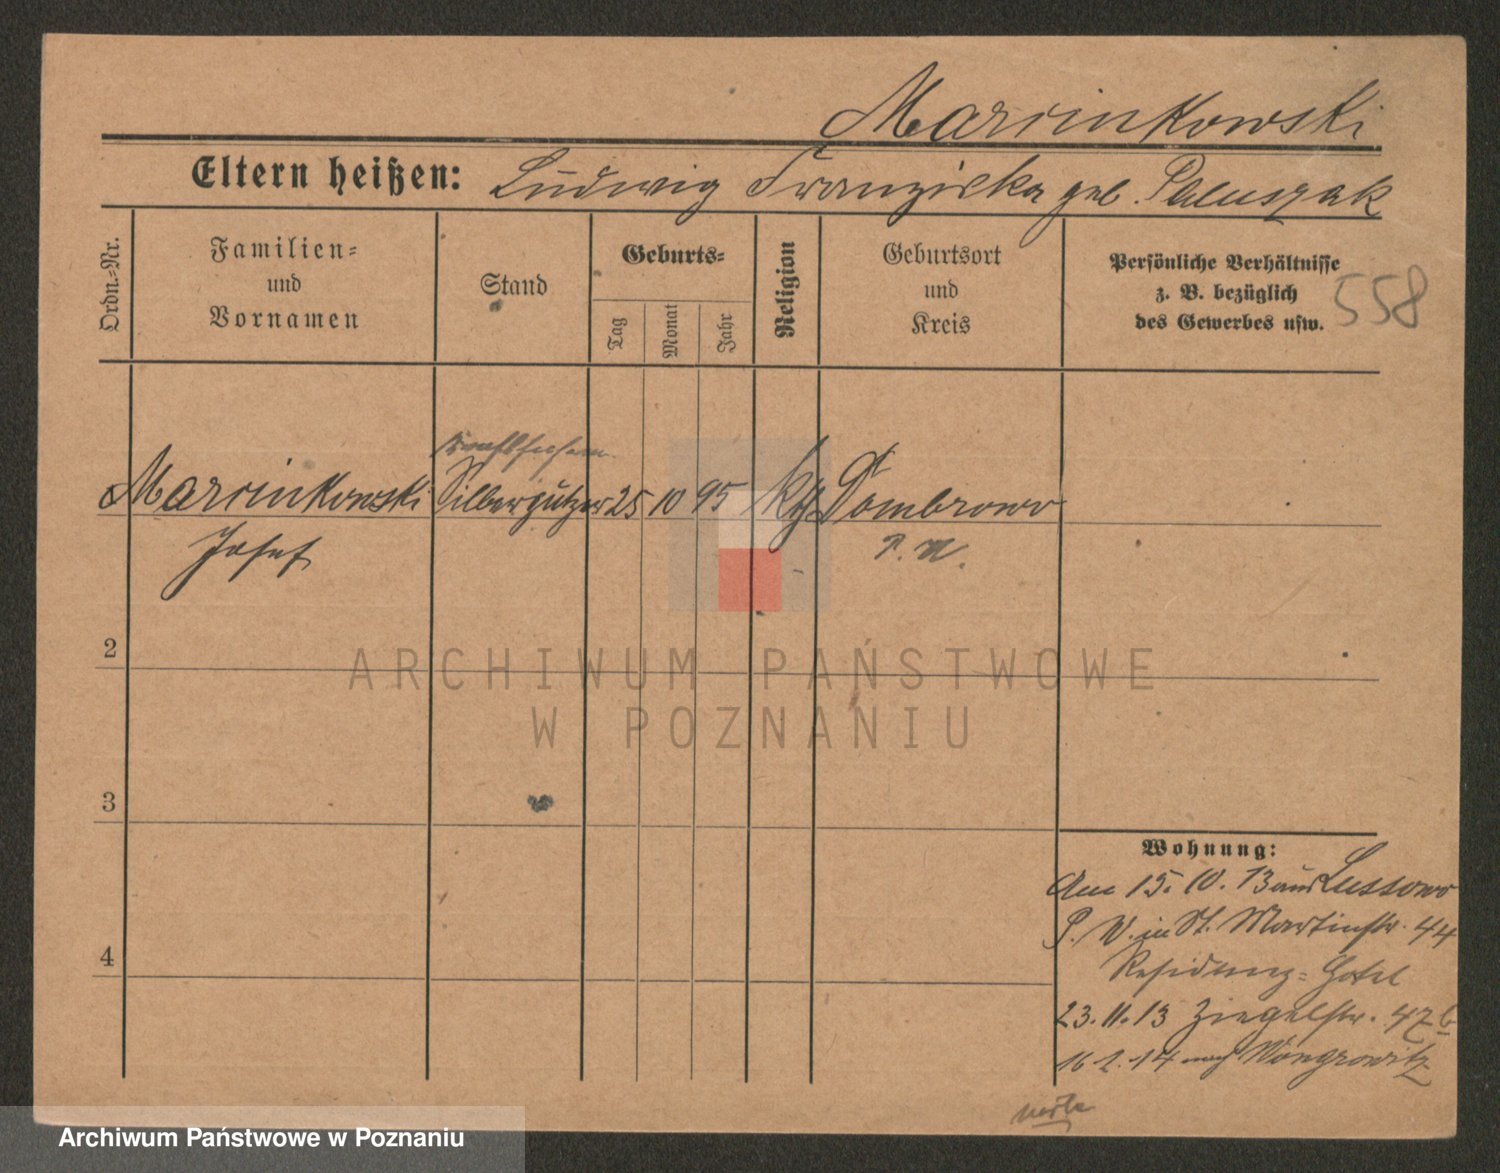 Marcinkowski
Eltern heißen: Ludwig Franziska geb. Paluszak
Ordn.=Nr.
Familien=
und
Vornamen
Stand
Geburts=
Tag
Monat
Jahr
Religion
Geburtsort
und
Kreis
Persönliche Verhältnisse
z. B. bezüglich
des Gewerbes usw.
558
Marcinkowski Silberputzer 25 10 95 kth Dombrowo
Josef P. W.
2
3
4
Wohnung:
Am 15. 10. 13 aus Lussowo
P. W. in St. Martinstr. 44
Residenz=Hotel
23. 11. 13 Ziegelstr. 47b
16 2. 14 nach Wongrowitz
ARCHIWUM PAŃSTWOWE
W POZNANIU
Archiwum Państwowe w Poznaniu